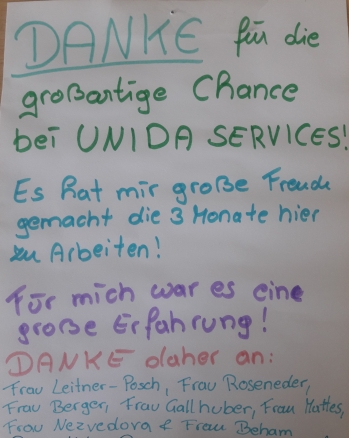 DANKE für die
großartige Chance
bei UNIDA SERVICES!
Es hat mir große Freude
gemacht die 3 Monate hier
zu Arbeiten!
Für mich war es eine
große Erfahrung!
DANKE daher an:
Frau Leitner-Posch, Frau Roseneder,
Frau Berger, Frau Gallhuber, Frau Mattes,
Frau Nezvedova & Frau Beham